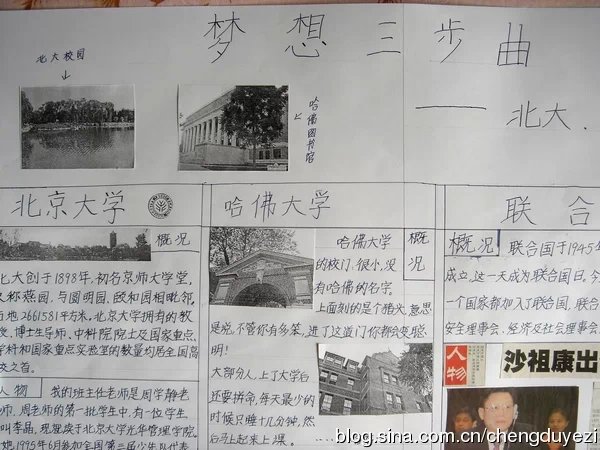 梦想三步曲
——北大.
北大校园
哈佛图书馆
北京大学
概况
北大创于1898年,初名京师大学堂,
又称燕园,与圆明园,颐和园相毗邻,
占地2661581平方米。北京大学拥有的教
授,博士生导师、中科院院士及国家重点
学科和国家重点实验室的数量均居全国高
校之首。
人物
我的班主任老师是周学静老
师,周老师的第一批学生中,有一位学生
叫李晶,现就读于北京大学光华管理学院。
她1995年6月参加全国第三届少年队代表
哈佛大学
概况
哈佛大学
的校门,很小,没
有哈佛的名字,
上面刻的是个猪头,意思
是说,不管你有多笨,进了这道门你都会变聪
明!
大部分人,上了大学后
还要拼命,每天最少的
时候只睡十几分钟,然
后马上起来上课。
联合
概况
联合国于1945年
成立,这一天成为联合国日。今
一个国家都加入了联合国,联合
安全理事会、经济及社会理事会
人物
沙祖康出
blog.sina.com.cn/chengduyezi